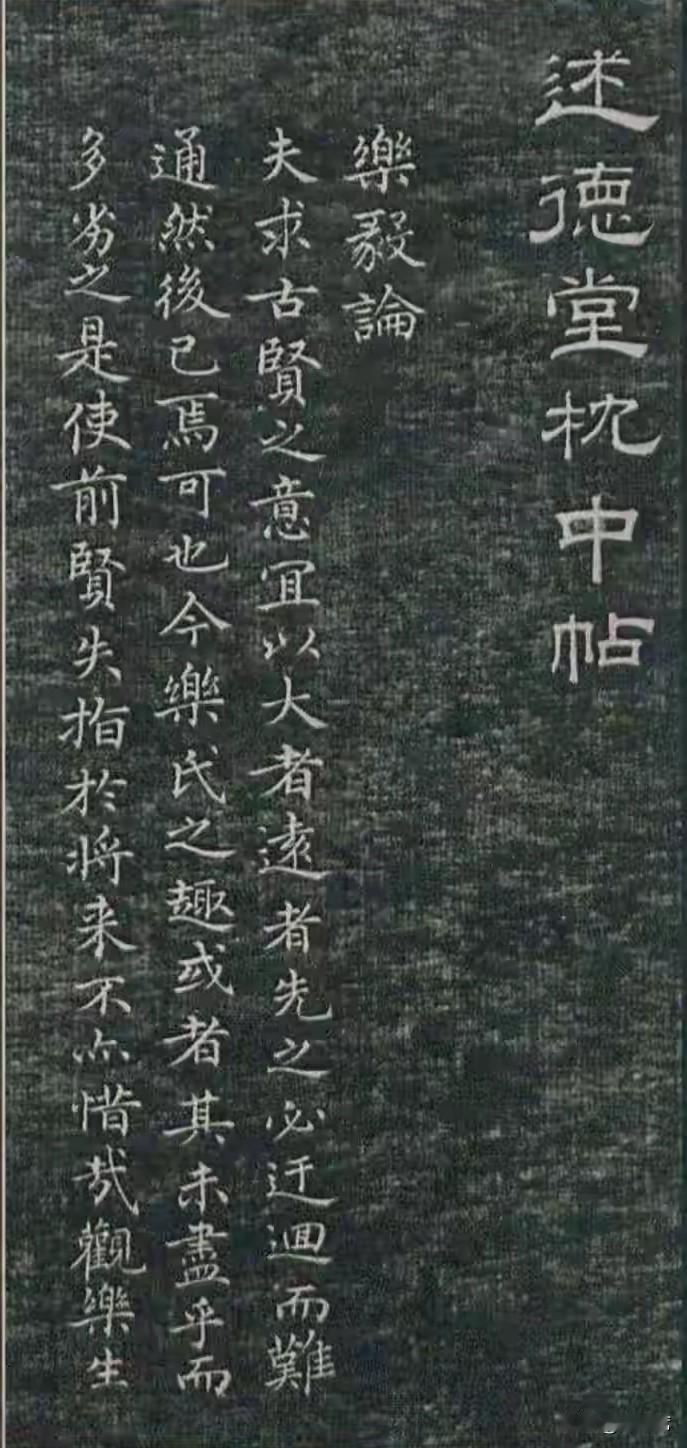 述德堂枕中帖
樂毅論
夫求古賢之意宜以大者遠者先之必迂迴而難
通然後已焉可也今樂氏之趣或者其未盡乎而
多劣之是使前賢失指於將来不亦惜哉觀樂生